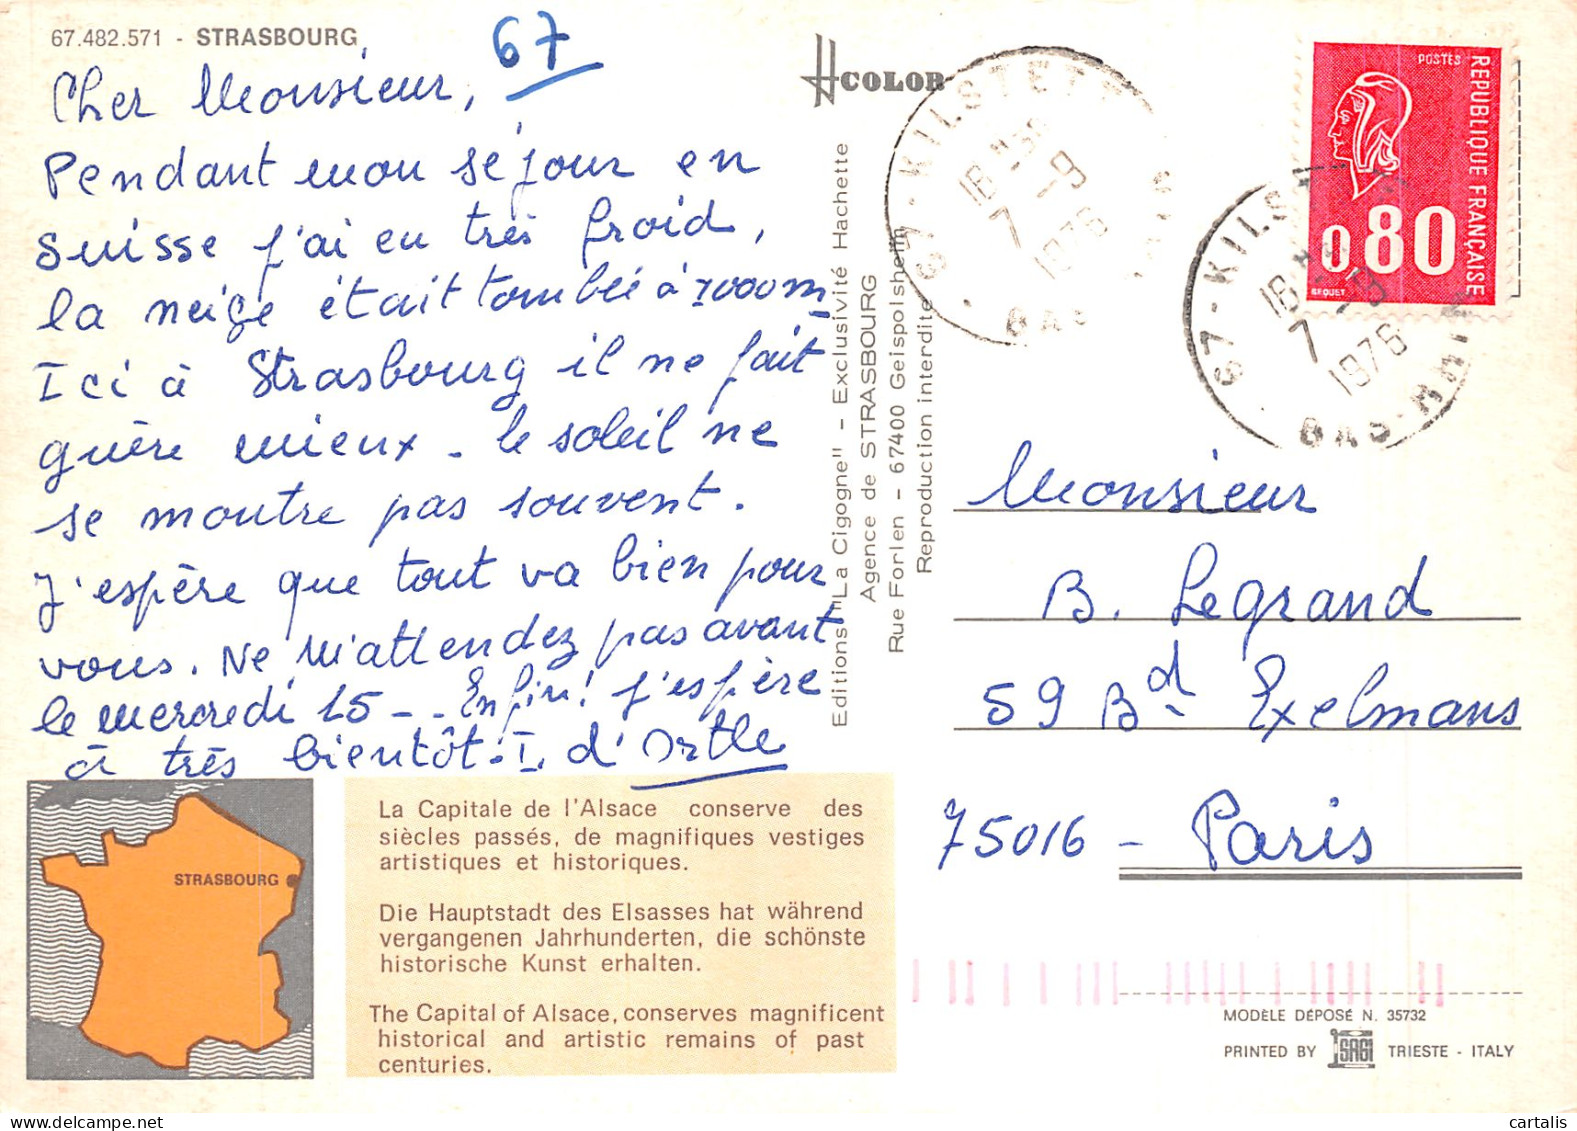 67.482.571 - STRASBOURG
67
Cher Monsieur,
Pendant mon séjour en
suisse j'ai eu très froid,
la neige était tombée à 2000m
Ici à Strasbourg il ne fait
guère mieux - le soleil ne
se montre pas souvent.
J'espère que tout va bien pour
vous. Ne m'attendez pas avant
le mercredi 15 - - Enfin! j'espère
à très bientôt. I. d'Ortle
STRASBOURG
La Capitale de l'Alsace conserve des
siècles passés, de magnifiques vestiges
artistiques et historiques.
Die Hauptstadt des Elsasses hat während
vergangenen Jahrhunderten, die schönste
historische Kunst erhalten.
The Capital of Alsace, conserves magnificent
historical and artistic remains of past
centuries.
COLOR
Editions "La Cigogne" - Exclusivité Hachette
Agence de STRASBOURG
Rue Forlen - 67400 Geispolsheim
Reproduction interdite
67 - KILSTETT
18H
7 - 9
1976
BAS
POSTES
REPUBLIQUE FRANÇAISE
0,80
BEQUET
67 - KILSTETT
18H
7 - 9
1976
BAS - RHIN
Monsieur
B. Legrand
59 Bd Exelmans
75016 - Paris
MODÈLE DÉPOSÉ N. 35732
PRINTED BY SAGI TRIESTE - ITALY
cartalis